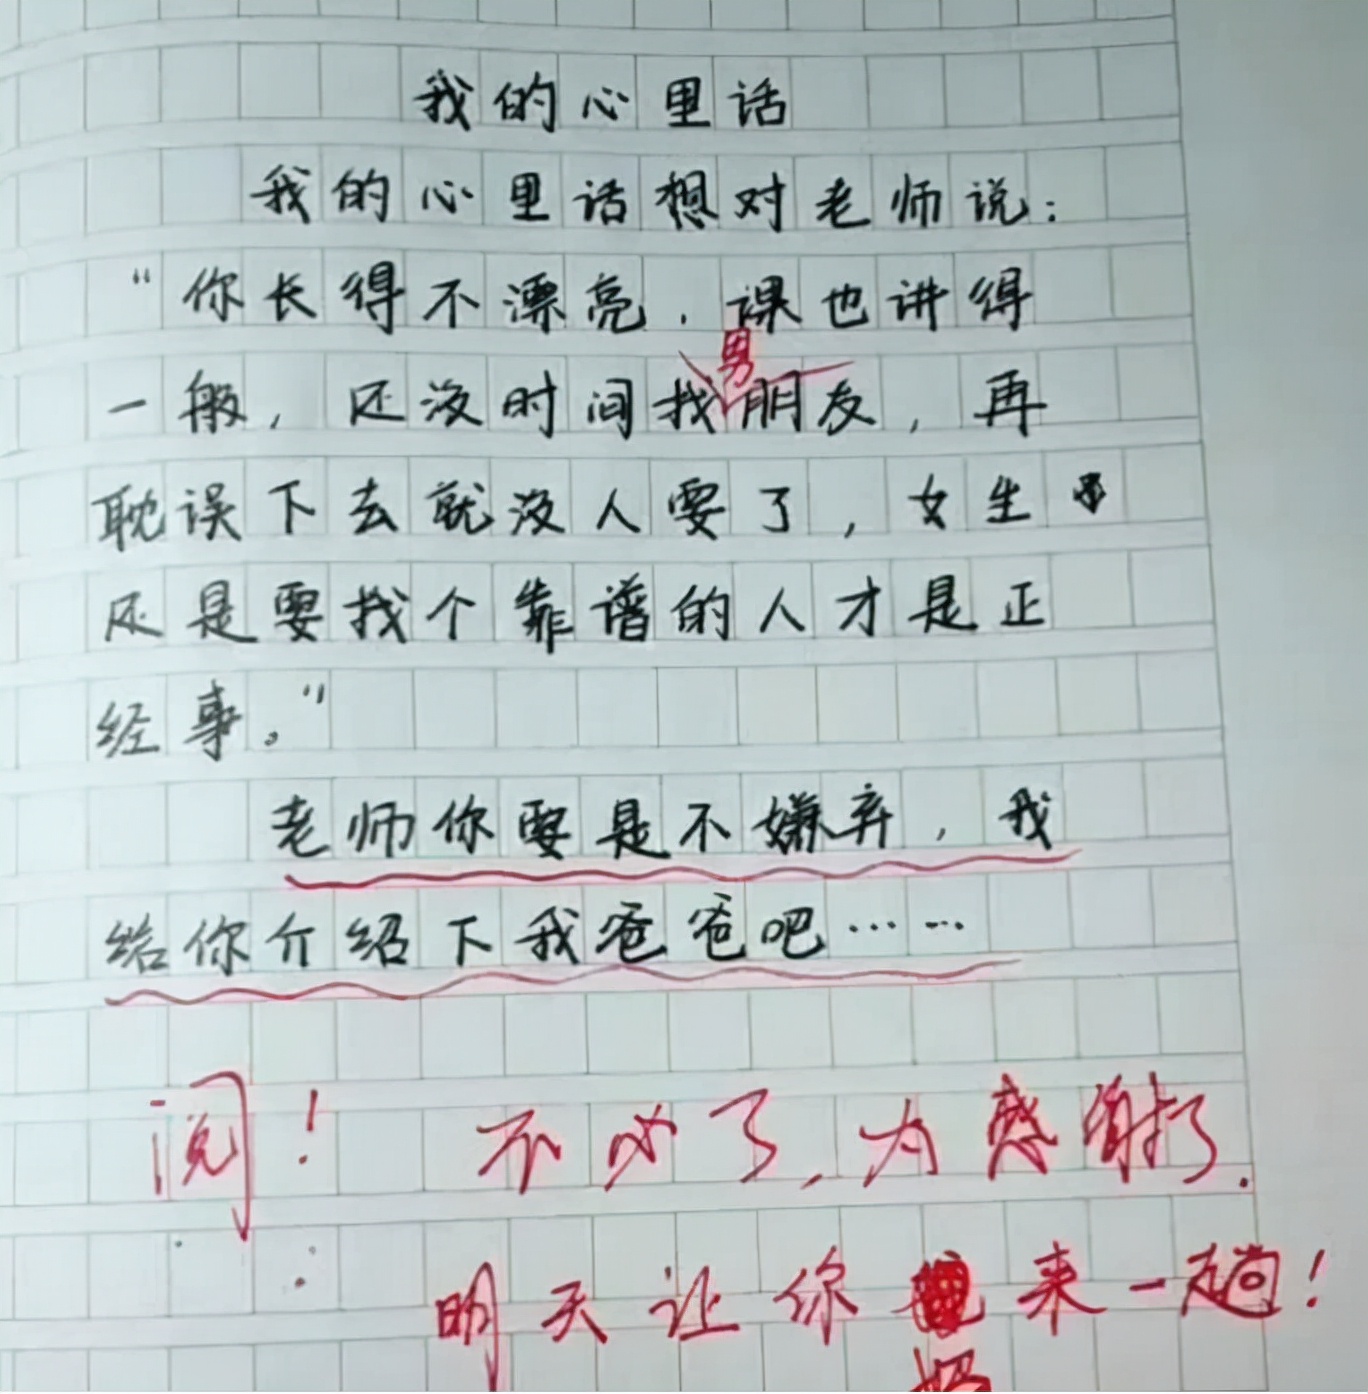 我的心里话
我的心里话想对老师说：
“你长得不漂亮，课也讲得
男
一般，还没时间找朋友，再
耽误下去就没人要了，女生
还是要找个靠谱的人才是正
经事。”
老师你要是不嫌弃，我
给你介绍下我爸爸吧……
阅！ 不必了，为感谢了.
明天让你来一趟！